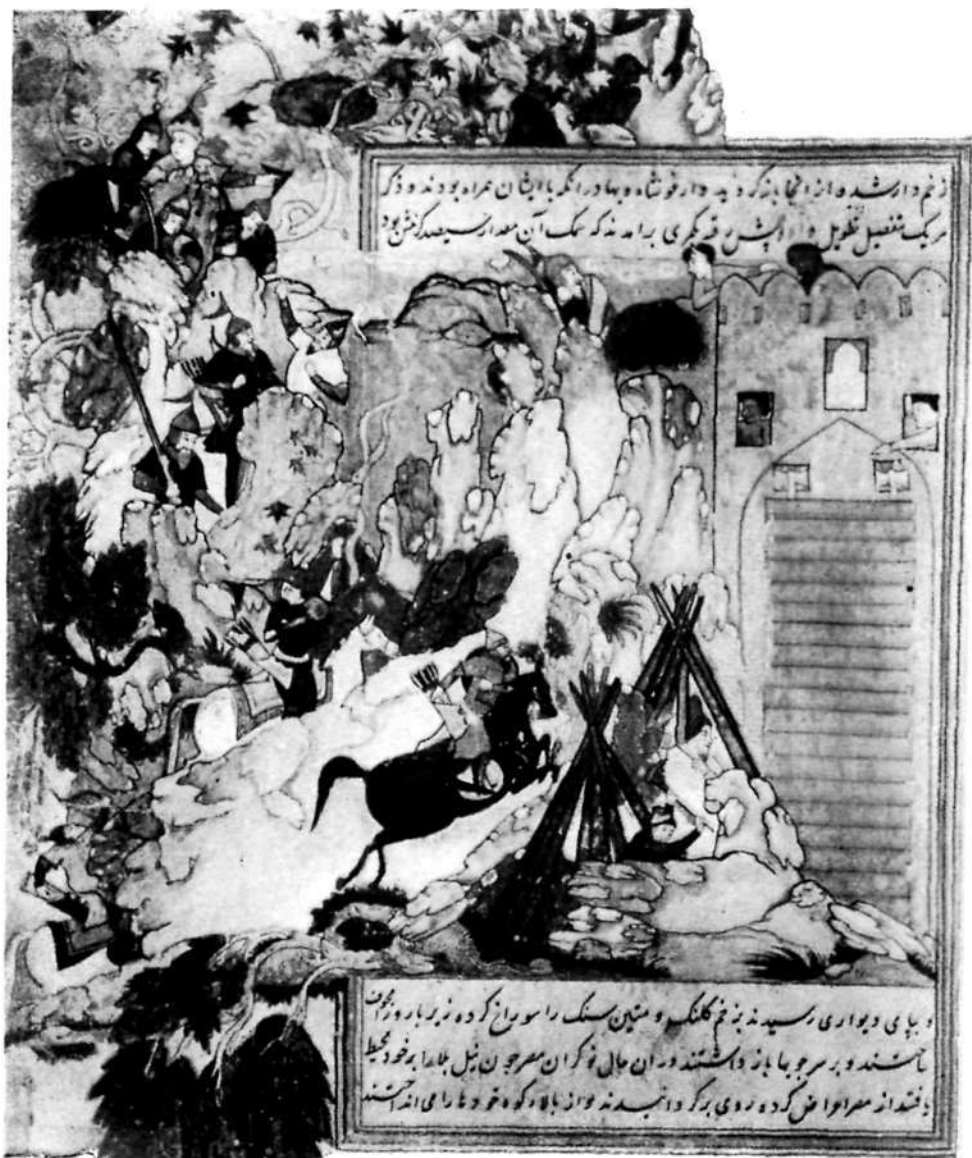 زخم دار شده از انجا بازگردید و ارغونشاه و بهادرانکه با ایشان همراه بودند و ذکر
هریک بتفصیل تطویل دارد پیش رفته بکمری برامدند که سمک آن مقدار سیصد گز بود
و بپای دیواری رسیدند بزخم کلنک و متین سنک را سوراخ کرده زیر بارو مجوف
ساختند و بر سرچوبها باز داشتند در ان حال نوکران مصر چون نیل بلا را بر خود محیط
یافتند از مصر اعراض کرده روی برگردانیدند و از بالاء کوه خود را می انداختند